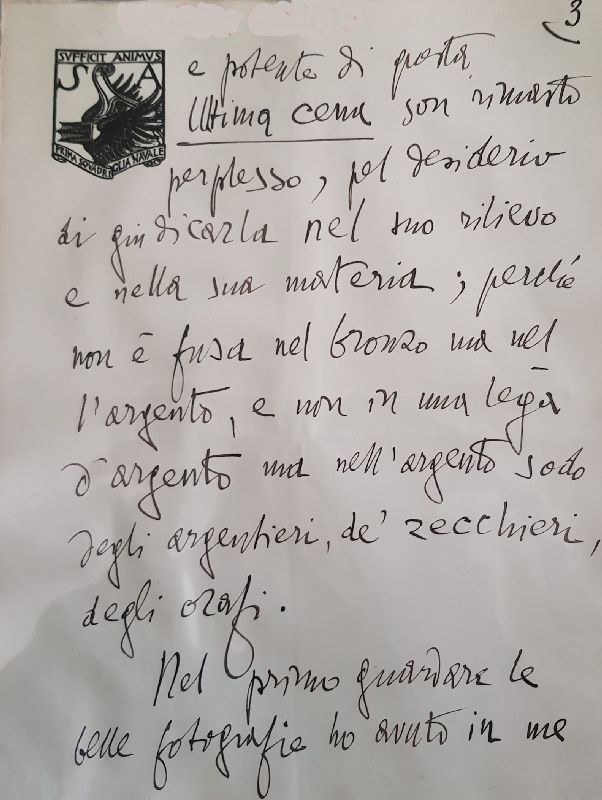 3
SVFFICIT ANIMVS
S A
PRIMA SQVADRIGLIA NAVALE
e potente di questa
Ultima cena son rimasto
perplesso, pel desiderio
di giudicarla nel suo rilievo
e nella sua materia; perché
non è fusa nel bronzo ma nel
l'argento, e non in una lega
d'argento ma nell'argento sodo
degli argentieri, de' zecchieri,
degli orafi.
Nel primo guardare le
belle fotografie ho avuto in me